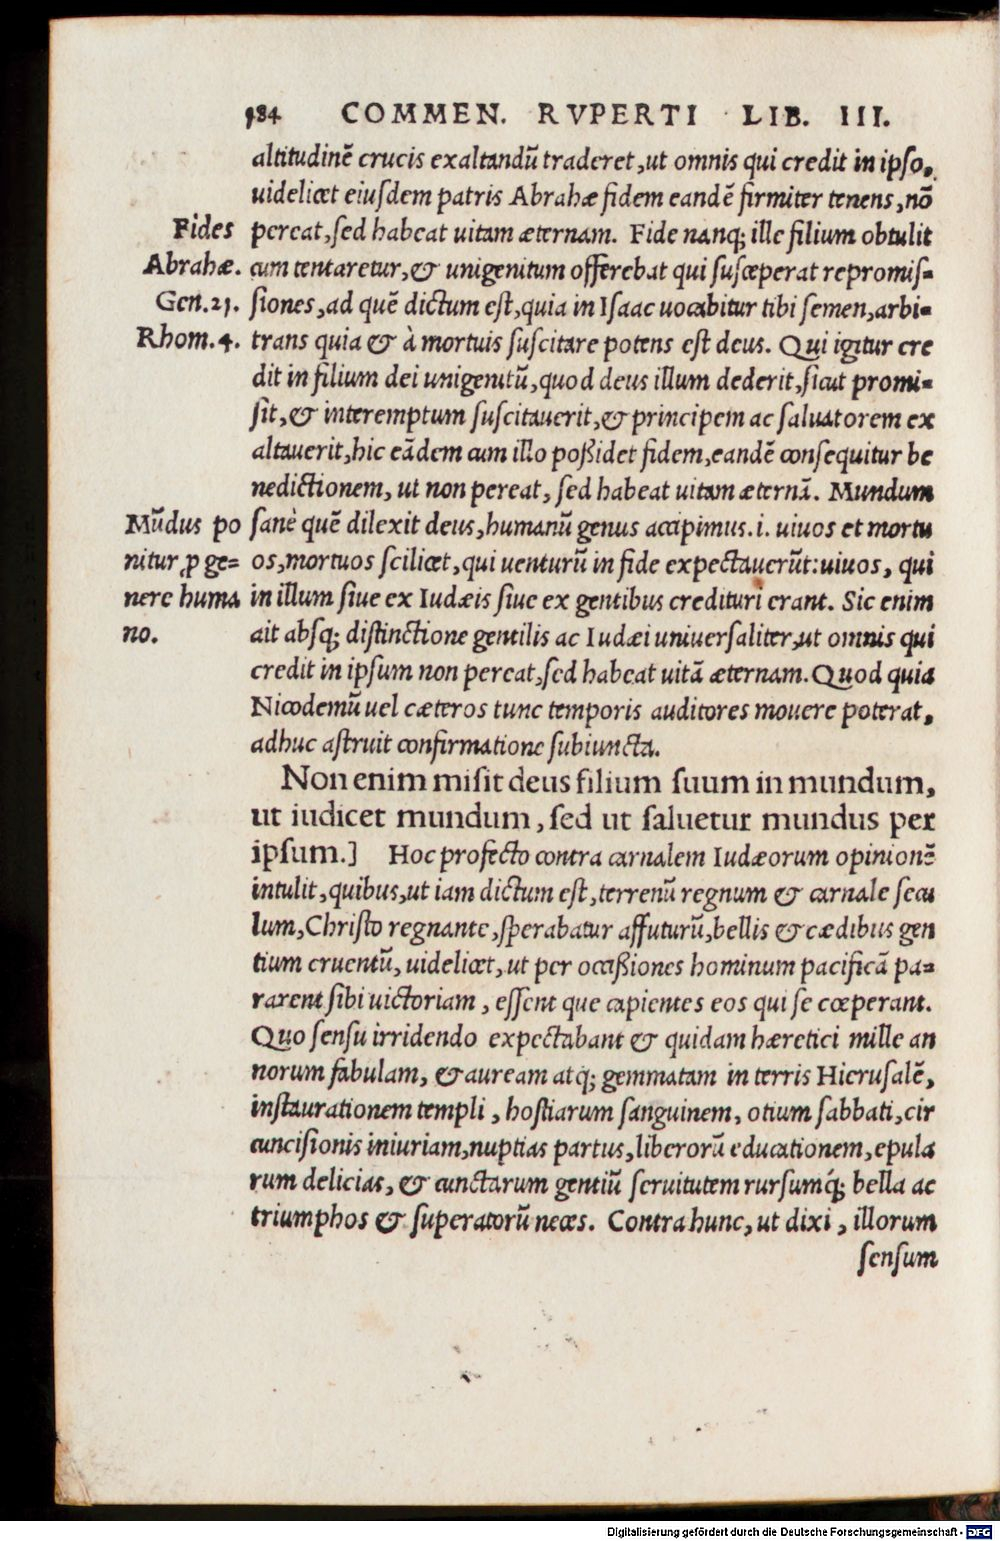 184 COMMEN. RVPERTI LIB. III.
altitudinē crucis exaltandū traderet, ut omnis qui credit in ipso,
uidelicet eiusdem patris Abrahæ fidem eandē firmiter tenens, nō
Fides
pereat, sed habeat uitam æternam. Fide nanq; ille filium obtulit
Abrahæ.
cum tentaretur, & unigenitum offerebat qui susceperat repromis-
Gen. 21.
siones, ad quē dictum est, quia in Isaac uocabitur tibi semen, arbi-
Rhom. 4.
trans quia & à mortuis suscitare potens est deus. Qui igitur cre
dit in filium dei unigenitū, quod deus illum dederit, sicut promi-
sit, & interemptum suscitauerit, & principem ac saluatorem ex
altauerit, hic eādem cum illo poßidet fidem, eandē consequitur be
nedictionem, ut non pereat, sed habeat uitam æternā. Mundum
Mūdus po
sanè quē dilexit deus, humanū genus accipimus. i. uiuos et mortu
nitur ꝓ ge-
os, mortuos scilicet, qui uenturū in fide expectauerūt: uiuos, qui
nere huma
in illum siue ex Iudæis siue ex gentibus credituri erant. Sic enim
no.
ait absq; distinctione gentilis ac Iudæi uniuersaliter, ut omnis qui
credit in ipsum non pereat, sed habeat uitā æternam. Quod quia
Nicodemū uel cæteros tunc temporis auditores mouere poterat,
adhuc astruit confirmatione subiuncta.
Non enim misit deus filium suum in mundum,
ut iudicet mundum, sed ut saluetur mundus per
ipsum.] Hoc profecto contra carnalem Iudæorum opinionē
intulit, quibus, ut iam dictum est, terrenū regnum & carnale secu
lum, Christo regnante, sperabatur affuturū, bellis & cædibus gen
tium cruentū, uidelicet, ut per occißiones hominum pacificā pa-
rarent sibi uictoriam, essent que capientes eos qui se cœperant.
Quo sensu irridendo expectabant & quidam hæretici mille an
norum fabulam, & auream atq; gemmatam in terris Hierusalē,
instaurationem templi, hostiarum sanguinem, otium sabbati, cir
cuncisionis iniuriam, nuptias partus, liberorū educationem, epula
rum delicias, & cunctarum gentiū seruitutem rursumq́; bella ac
triumphos & superatorū neces. Contra hunc, ut dixi, illorum
sensum
Digitalisierung gefördert durch die Deutsche Forschungsgemeinschaft - DFG